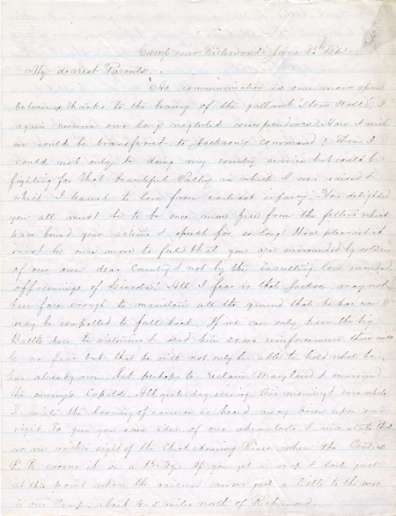 Camp near Richmond June 1862
My dearest Parents.
The communication is once more open
between us thanks to the bravery of the gallant Stone Wall, I
again resume our long neglected correspondence. How I wish
we could be transferred to Jackson's command & then I
could not only be doing my country service but could be
fighting for that beautiful Valley in which I was raised &
which I learned to love from earliest infancy. How delighted
you all must be to be once more free from the fetters which
have bound your actions & speech for so long! How pleasant it
must be once more to feel that you are surrounded by soldiers
of our own dear Country & not by the insulting low minded
offscourings of Lincoln. All I fear is that Jackson may not
have force enough to maintain all the ground that he has won &
may be compelled to fall back. If we can only win the big
Battle here, be victorious & send him some reinforcements there will
be no fear but that he will not only be able to hold what he
has already won, but perhaps to reclaim Maryland & surround
the enemy's Capitol. All yesterday evening & this morning & even while
I write the booming of cannon is heard away down upon our
right. To give you some idea of our whereabouts I will state that
we are within sight of the Chickahominy River where the Central
R.R. crosses it on a Bridge. If you get a map & look just
at this point where the railroad crosses just a little to the west
is our Camp, about 4-5 miles north of Richmond.